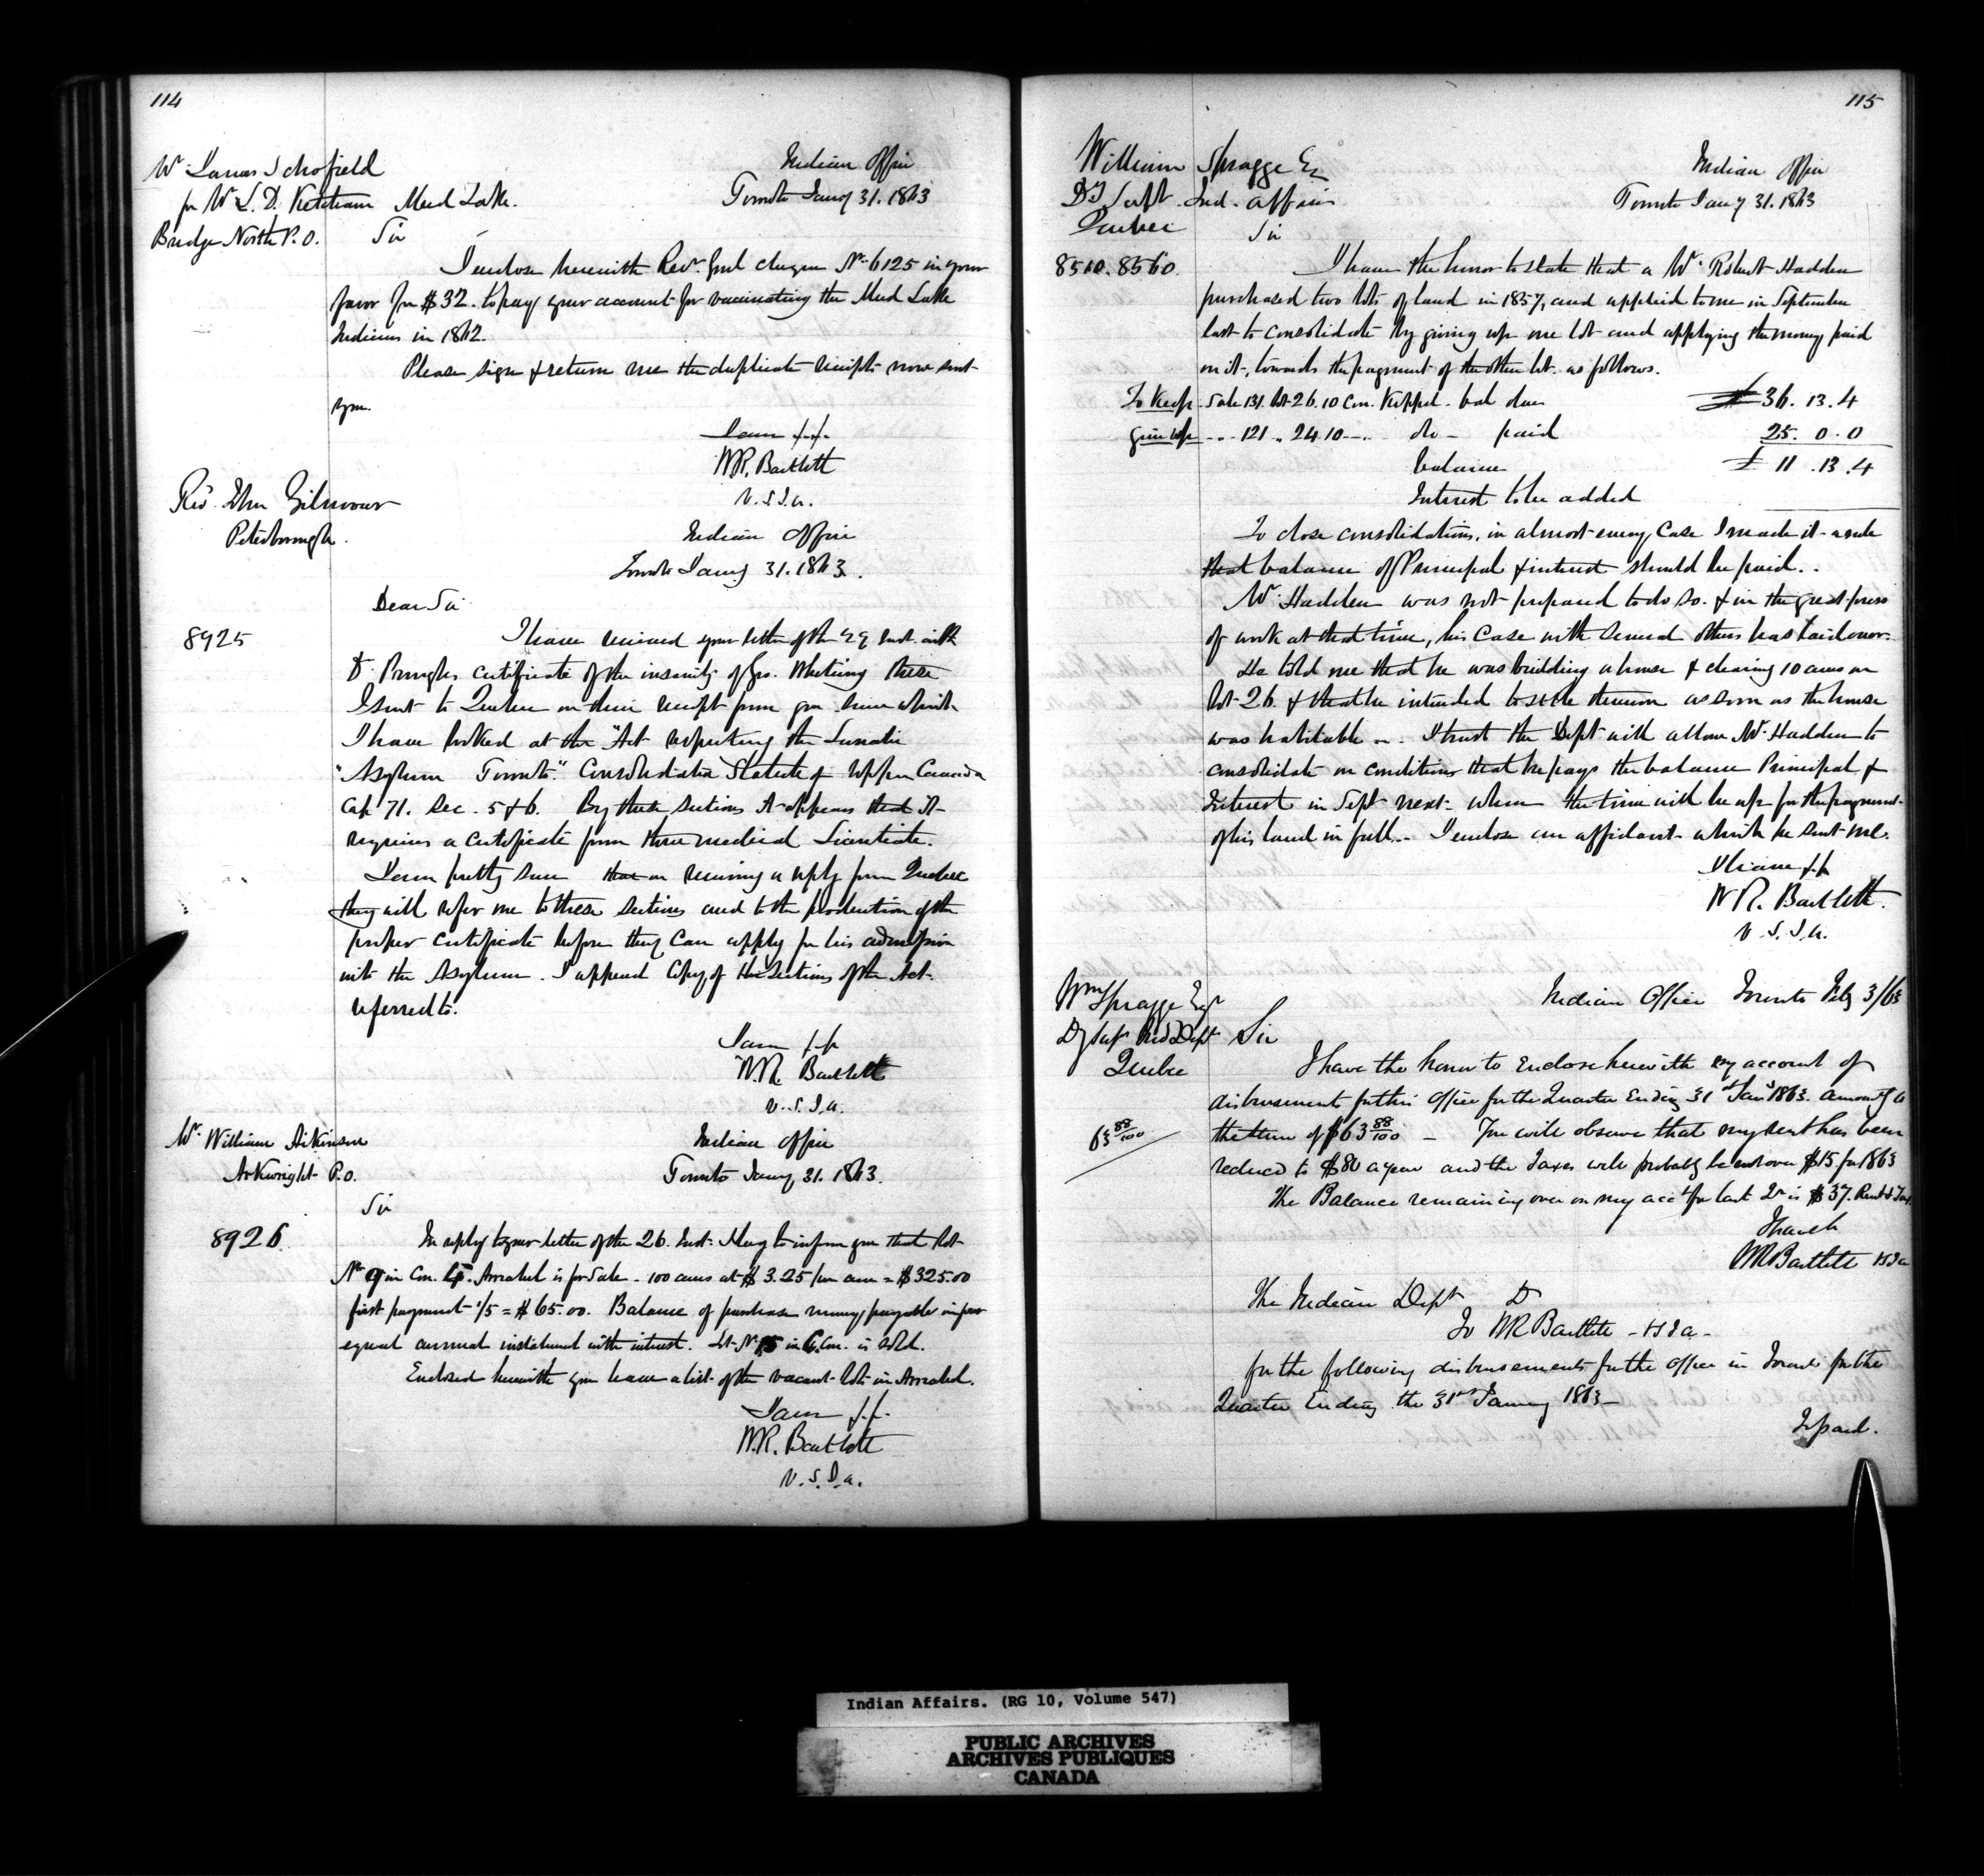 114
Mr. James Schofield
for Mr. L. D. Ketcham Mud Lake.
Bridge North P.O.
Indian Office
Toronto Jany 31. 1863
Sir
I enclose herewith Recr. Genl cheque No. 6125 in your
favor for $32. to pay your account for vaccinating the Mud Lake
Indians in 1862.
Please sign & return me the duplicate receipts now sent
you.
I am &.&.
W.R. Bartlett
V.S.I.A.
Revd. John Gilmour
Peterborough.
Indian Office
Toronto Jany 31. 1863.
Dear Sir
8925
I have received your letter of the 29 inst. with
Dr. certificate of the insanity of Geo. these
I sent to Quebec on their receipt from you since which
I have looked at the "Act respecting the Lunatic
"Asylum Toronto." Consolidated Statute of Upper Canada
Cap 71. Sec. 5 & 6. By these sections it appears that it
requires a certificate from three medical Licentiate.
I am pretty sure that on receiving a reply from Quebec
they will refer me to these sections and to the production of the
proper certificate before they can apply for his admission
into the Asylum. I append Copy of the Sections of the Act
referred to.
I am &.&
W.R. Bartlett
V.S.I.A.
Mr. William Aikinson
Arkwright P.O.
Indian Office
Toronto Jany 31. 1863.
Sir
8926.
In reply to your letter of the 26. Inst. I beg to inform you that lot
No. 9 in Con. 4. Arrabel is for Sale - 100 acres at $3.25 per acre = $325.00
first payment 1/5 = $65.00. Balance of purchase money payable in four
equal annual instalment with interest. Lot No. 15 in 6. Con. is sold.
Enclosed herewith you have a list of the vacant lots in Arrabel.
I am &.&.
W.R. Bartlett
V.S.I.A.
115
William Spragge Esq
Dy Supt. Ind. Affairs
Quebec
Indian Office
Toronto Jany 31. 1863
Sir
8510.8560.
I have the honor to state that a Mr. Robert Hadden
purchased two lots of land in 1857, and applied to me in September
last to consolidate by giving up one lot and applying the money paid
on it, towards the payment of the other lot as follows.
To Keep. Sale 131. lot 26. 10 Con. Keppel. bal due £36. 13. 4
give up " 121 " 24 10 " do - paid 25. 0. 0
balance £11. 13. 4
Interest to be added
To close consolidations, in almost every case I made it a rule
that balance of Principal & interest should be paid.
Mr. Hadden was not prepared to do so. & in the great press
of work at that time, his case with several others has laid over.
He told me that he was building a house & clearing 10 acres on
lot 26. & that he intended to settle thereon as soon as the house
was habitable - I trust the Dept will allow Mr. Hadden to
consolidate on conditions that he pays the balance Principal &
Interest in Sept next when the time will be up for the payment
of his land in full. - I enclose an affidavit which he sent me.
I have &.&
W.R. Bartlett.
V.S.I.A.
Wm Spragge Esqr
Dy Supt Ind Dept
Quebec
Indian Office Toronto Feby 3/63
Sir
I have the honor to Enclose herewith my account of
disbursements for this Office for the Quarter Ending 31st Jany 1863. amountg to
63 88/100
the sum of $63 88/100 - You will observe that my rent has been
reduced to $80 a year and the Taxes will probably be not over $15 for 1863
The Balance remaining over on my acct for last Qr is $37. Rent & Tax
I have &c
WR Bartlett VSIA
The Indian Dept Dr
To WR Bartlett - VSIA -
for the following disbursements for the Office in Toronto for the
Quarter Ending the 31st January 1863 -
Indian Affairs. (RG 10, Volume 547)
PUBLIC ARCHIVES
ARCHIVES PUBLIQUES
CANADA